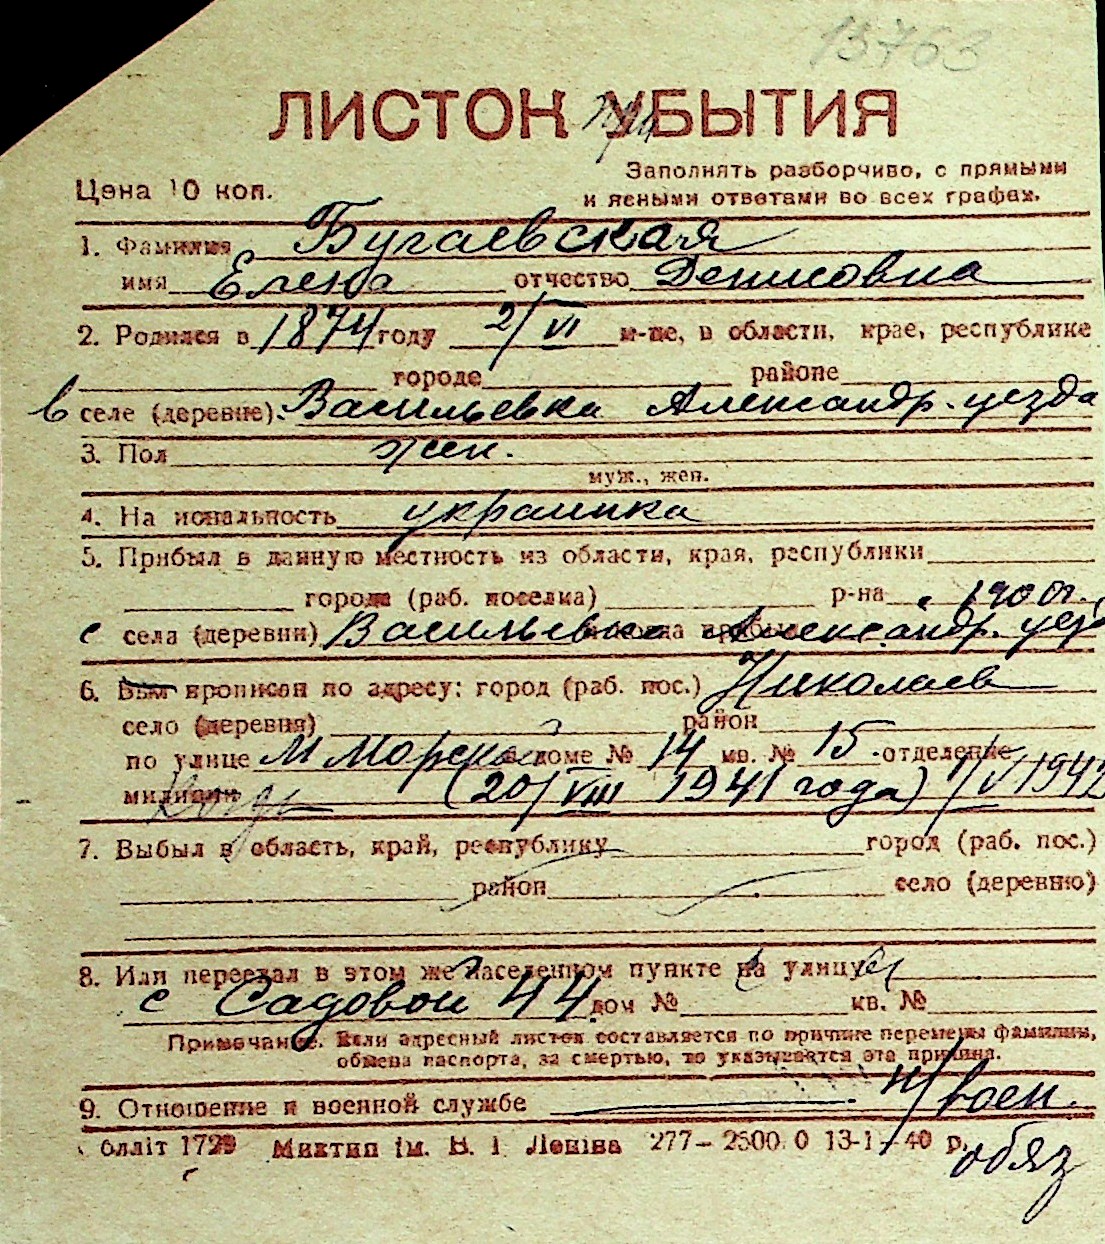 13763
ЛИСТОК при УБЫТИЯ
Цена 10 коп.
Заполнять разборчиво, с прямыми
и ясными ответами во всех графах.
1. Фамилия Бугаевская
имя Елена отчество Денисовна
2. Родился в 1874 году 2/VI м-це, в области, крае, республике
городе районе
в селе (деревне) Васильевка Александр. уезда
3. Пол жен.
муж., жен.
4. На иональность украинка
5. Прибыл в данную местность из области, края, республики
города (раб. поселка) р-на 1900г.
с села (деревни) Васильевка Александр. уезд
6. Был прописан по адресу: город (раб. пос.) Николаев
село (деревня) район
по улице М Морской доме № 14 кв. № 15 отделение
милиции (20/VIII 1941 года) 1/V 1942
7. Выбыл в область, край, республику город (раб. пос.)
район село (деревню)
8. Или переехал в этом же населенном пункте на улицу
с Садовой 44 дом № кв. №
Примечание. Если адресный листок составляется по причине перемены фамилии,
обмена паспорта, за смертью, то указывается эта причина.
9. Отношение к военной службе н/воен.
обяз
блліт 1729 Миктип ім. В. І Леніва 277— 2500 0 13-1—40 р.